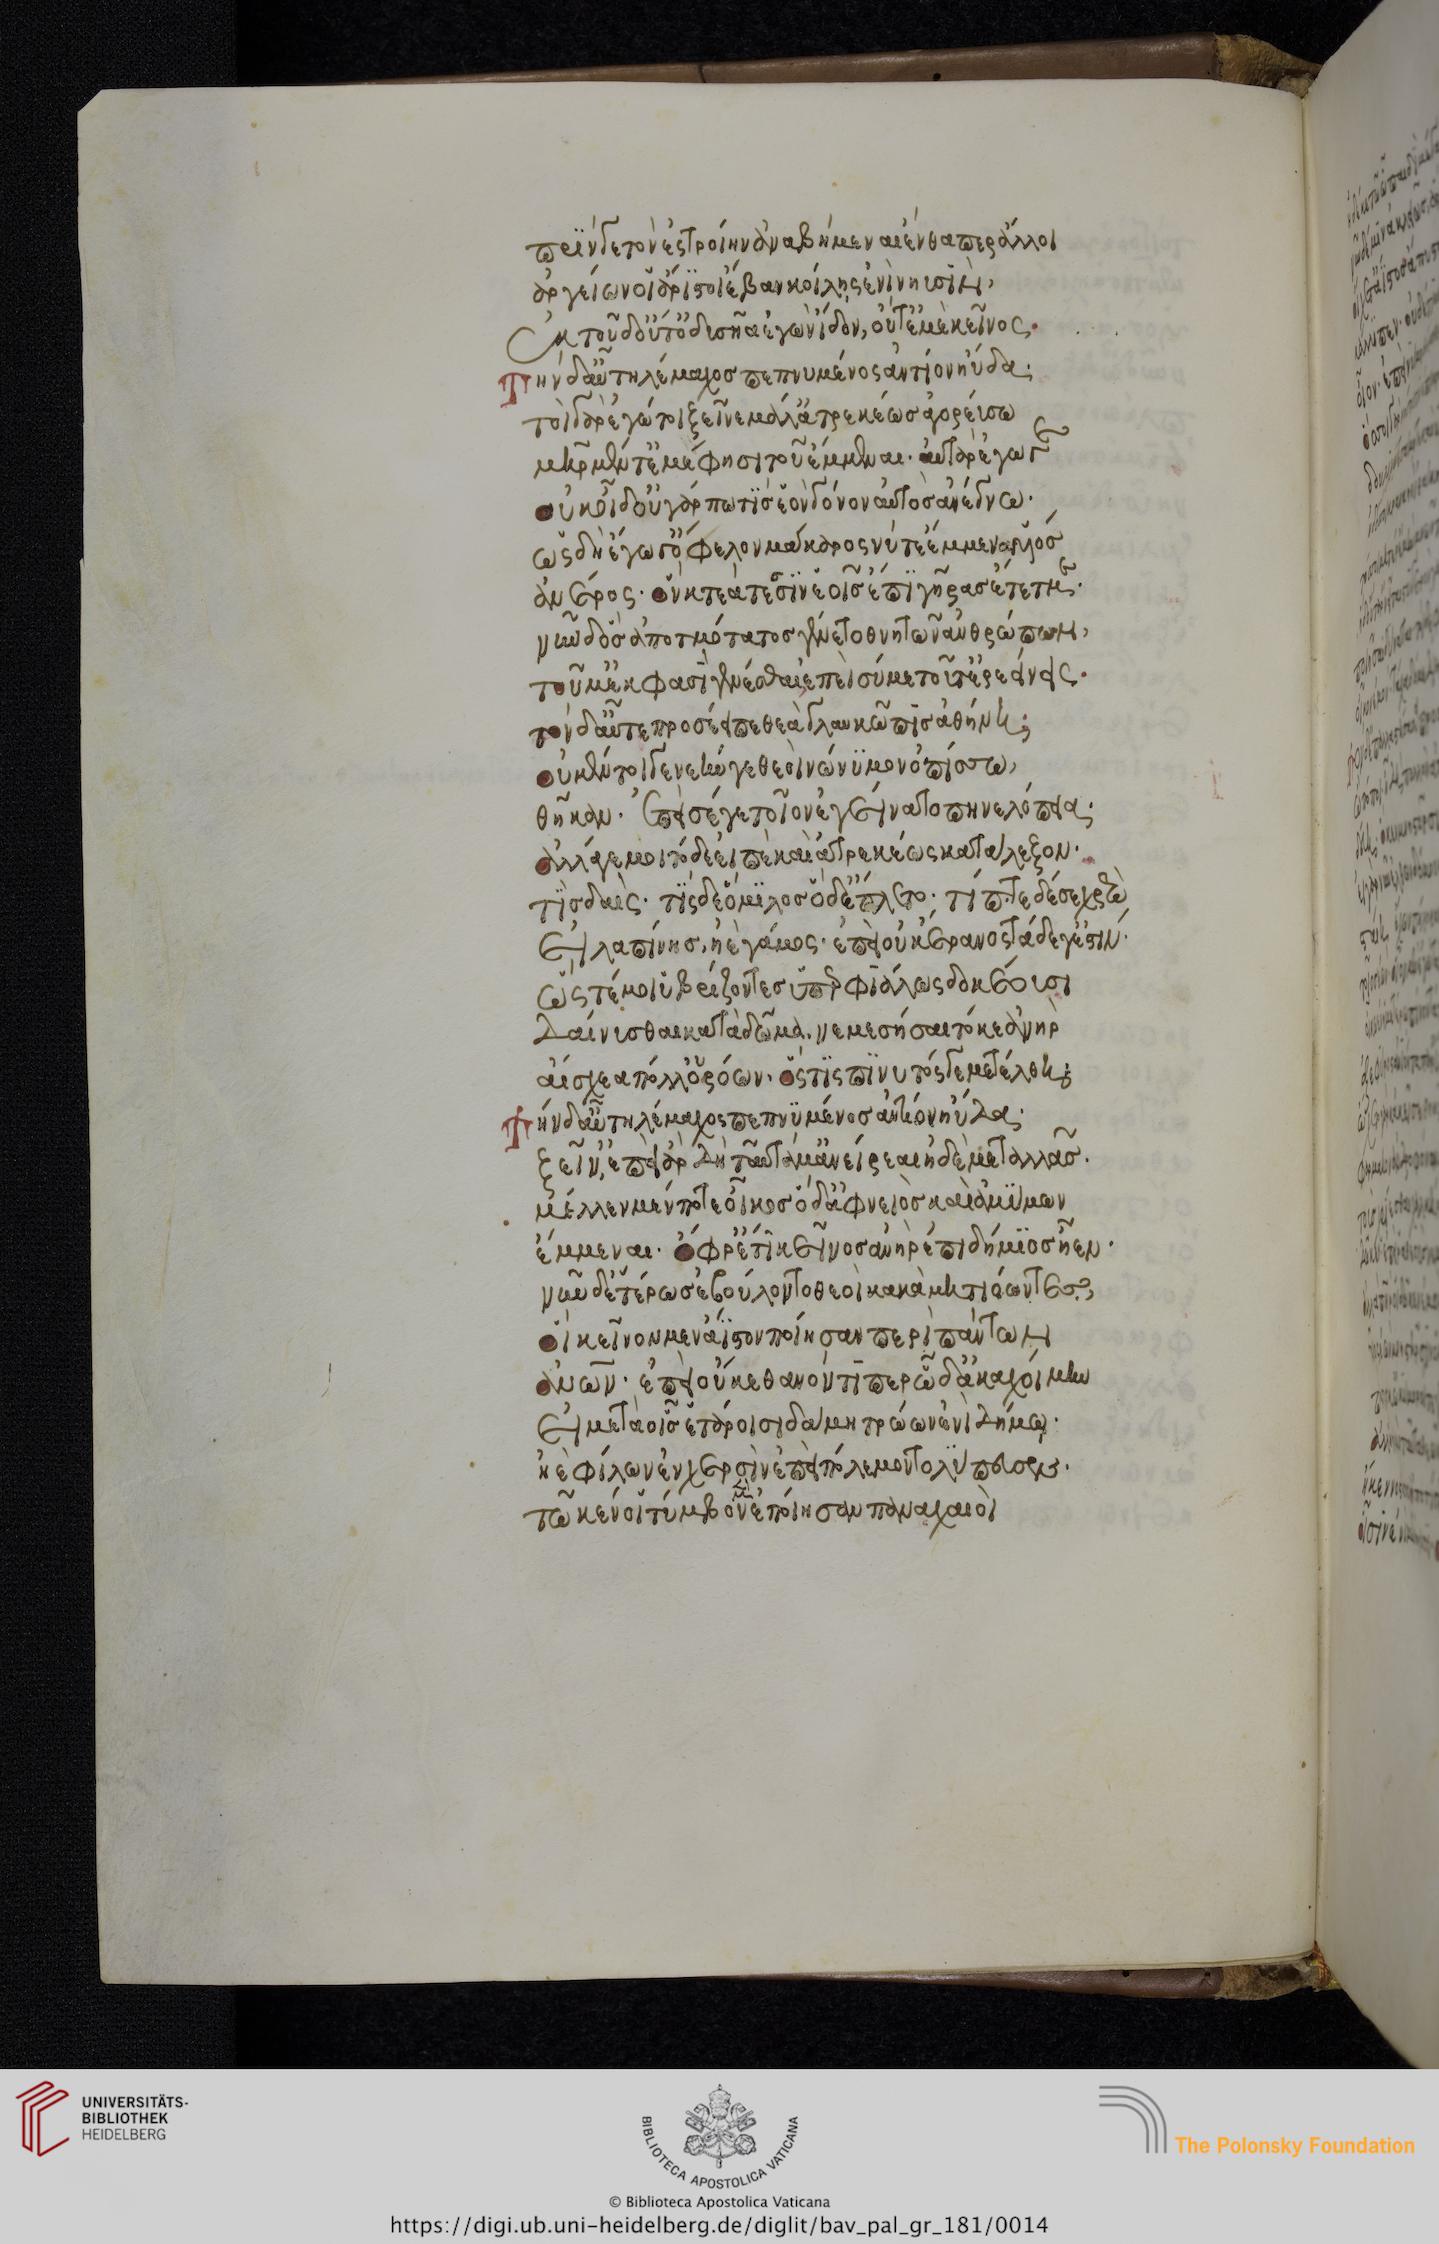 πρὶν δὲ τὸν ἐς τροίην ἀναβήμεναι ἔνθα περ ἄλλοι
ἀργείων οἱ ἄριστοι ἔβαν κοίλης ἐνὶ νηυσὶν,
ἐκ τοῦ δ' οὔτ' ὀδυσῆα ἐγὼν ἴδον, οὔτ' ἐμὲ κεῖνος.
τὴν δ' αὖ τηλέμαχος πεπνυμένος ἀντίον ηὔδα·
τοὶ γὰρ ἐγώ τοι ξεῖνε μάλ' ἀτρεκέως ἀγορεύσω
μήτηρ μέν τ' ἐμέ φησι τοῦ ἔμμεναι· αὐτὰρ ἐγωγε
οὐκ οἶδ' οὐ γάρ πώ τις ἑὸν γόνον αὐτὸς ἀνέγνω·
ὡς δὴ ἔγωγ' ὄφελον μάκαρος νύ τευ ἔμμεναι υἱός
ἀνέρος· ὃν κτεάτεσσιν ἑοῖς ἔπι γῆρας ἔτετμεν·
νῦν δ' ὃς ἀποτμότατος γένετο θνητῶν ἀνθρώπων,
τοῦ μ' ἔκ φασι γενέσθαι ἐπεὶ σύ με τοῦτ' ἐρεείνεις.
τὸν δ' αὖτε προσέειπε θεὰ γλαυκῶπις ἀθήνη·
οὐ μέν τοι γενεήν γε θεοὶ νώνυμον ὀπίσσω,
θῆκαν· ἐπεὶ σέ γε τοῖον ἐγείνατο πηνελόπεια·
ἀλλ' ἄγε μοι τόδε εἰπὲ καὶ ἀτρεκέως κατάλεξον·
τὶς δαὶς· τίς δὲ ὅμιλος ὅδ' ἔπλετο· τίπτε δέ σε χρεὼ
εἰλαπίνης, ἠὲ γάμος· ἐπεὶ οὐκ ἔρανος τάδε γ' ἐστίν·
ὥς τέ μοι ὑβρίζοντες ὑπερφιάλως δοκέουσι
δαίνυσθαι κατὰ δῶμα. νεμεσήσαιτό κεν ἀνὴρ
αἴσχεα πόλλ' ὁρόων· ὅς τις πινυτός γε μετέλθη·
τὴν δ' αὖ τηλέμαχος πεπνυμένος ἀντίον ηὔδα·
ξεῖν', ἐπεὶ ἂρ δὴ ταῦτά μ' ἀνείρεαι ἠδὲ μεταλλᾶς·
μέλλεν μέν ποτε οἶκος ὅδ' ἀφνειὸς καὶ ἀμύμων
ἔμμεναι· ὄφρ' ἔτι κεῖνος ἀνὴρ ἐπιδήμιος ἦεν·
νῦν δ' ἑτέρως ἐβούλοντο θεοὶ κακὰ μητιόωντες,
οἳ κεῖνον μὲν ἄϊστον ποίησαν περὶ πάντων
ἀνθρώπων· ἐπεὶ οὔ κε θανόντι περ ὧδ' ἀκαχοίμην
εἰ μετὰ οἷς ἑτάροισι δάμη τρώων ἐνὶ δήμῳ·
ἠὲ φίλων ἐν χερσὶν ἐπεὶ πόλεμον τολύπευσεν·
τῶ κέν οἱ τύμβον μὲν ἐποίησαν παναχαιοὶ
UNIVERSITÄTS-
BIBLIOTHEK
HEIDELBERG
BIBLIOTECA APOSTOLICA VATICANA
The Polonsky Foundation
© Biblioteca Apostolica Vaticana
https://digi.ub.uni-heidelberg.de/diglit/bav_pal_gr_181/0014